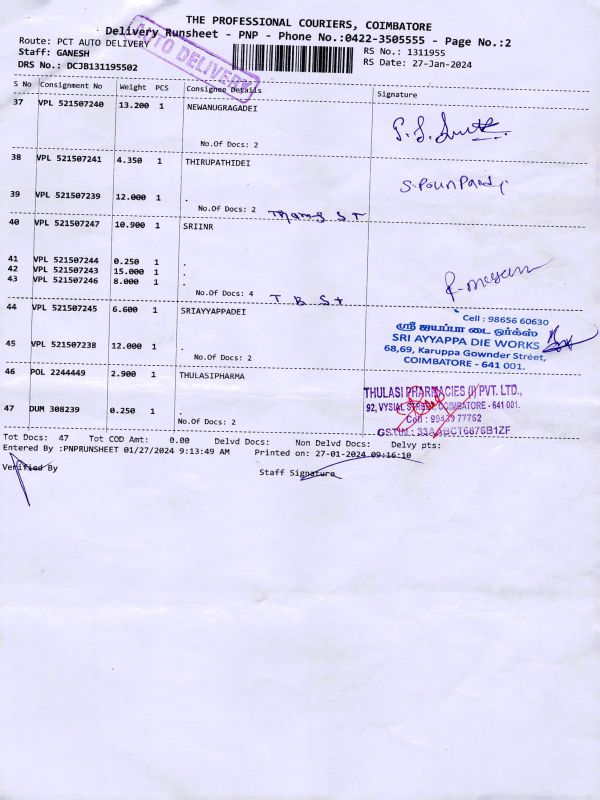 THE PROFESSIONAL COURIERS, COIMBATORE
Delivery Runsheet - PNP - Phone No.:0422-3505555 - Page No.:2
Route: PCT AUTO DELIVERY RS No.: 1311955
Staff: GANESH RS Date: 27-Jan-2024
DRS No.: DCJB131195502
AUTO DELIVERY
S No Consignment No Weight PCS Consignee Details Signature
37 VPL 521507240 13.200 1 NEWANUGRAGADEI
No.Of Docs: 2
38 VPL 521507241 4.350 1 THIRUPATHIDEI
S. Poun Pandi
39 VPL 521507239 12.000 1 .
No.Of Docs: 2
40 VPL 521507247 10.900 1 SRIINR
41 VPL 521507244 0.250 1 .
42 VPL 521507243 15.000 1 .
43 VPL 521507246 8.000 1 .
No.Of Docs: 4
T B St
44 VPL 521507245 6.600 1 SRIAYYAPPADEI
Cell : 98656 60630
ஸ்ரீ ஐயப்பா டை ஒர்க்ஸ்
SRI AYYAPPA DIE WORKS
68,69, Karuppa Gownder Street,
COIMBATORE - 641 001.
45 VPL 521507238 12.000 1 .
No.Of Docs: 2
46 POL 2244449 2.900 1 THULASIPHARMA
THULASI PHARMACIES (I) PVT. LTD.,
92, VYSIAL STREET, COIMBATORE - 641 001.
Cell : 99439 77762
GSTIN : 33AABCT6676B1ZF
47 DUM 308239 0.250 1 .
No.Of Docs: 2
Tot Docs: 47 Tot COD Amt: 0.00 Delvd Docs: Non Delvd Docs: Delvy pts:
Entered By :PNPRUNSHEET 01/27/2024 9:13:49 AM Printed on: 27-01-2024 09:16:10
Verified By Staff Signature